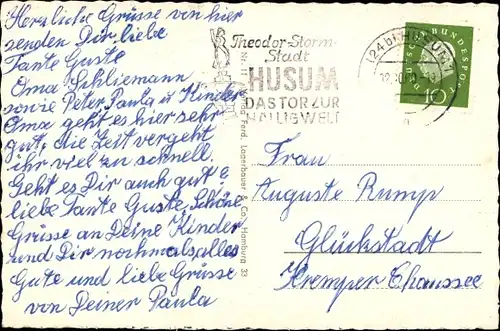 Herzliche Grüsse von hier
senden Dir, liebe
Tante Guste
Oma Schliemann
sowie Peter, Paula u. Kinder
Oma geht es hier sehr
gut, die Zeit vergeht
ihr viel zu schnell.
Geht es Dir auch gut
liebe Tante Guste, Schöne
Grüsse an Deine Kinder
und Dir nochmals alles
Gute und liebe Grüsse
von Deiner Paula
Theodor-Storm-
Stadt
HUSUM
DAS TOR ZUR
HALLIGWELT
(24b) HUSUM
DEUTSCHE BUNDESPOST
10
Ferd. Lagerbauer & Co., Hamburg 33
Frau
Auguste Rump
Glückstadt
Kremper Chaussee